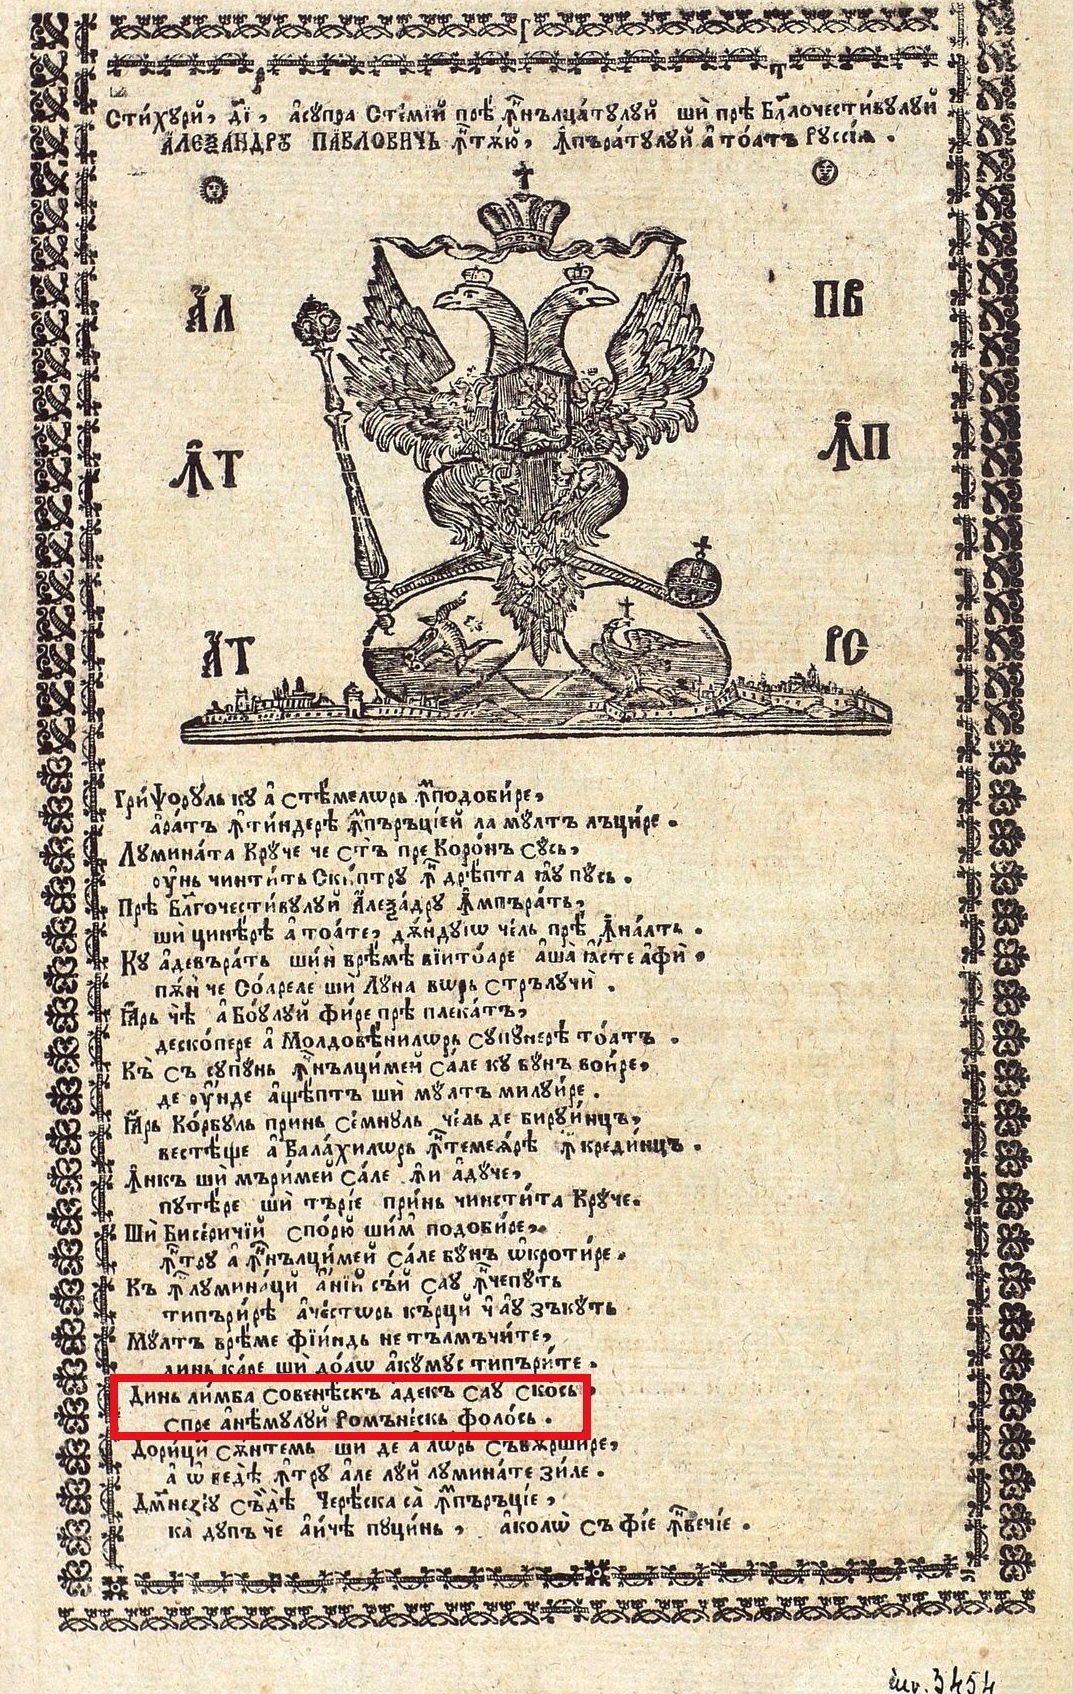 Стїхурй, д҃ї, асупра Стемїй прѣ ꙟнълцатулуй шѝ прѣ Бл҃гочестивулуй
АЛЕѮАНДРꙊ ПАВЛОВИЧЬ ꙟтѫю, ꙟпъратулуй а тоатъ Руссїѧ.
АЛ ПВ
ꙞТ ꙞП
АТ РС
Грифорꙋль кꙋ а стемелѡрь ꙟподобире,
аратъ ꙟтиндерѣ ꙟпъръцїей ла мꙋлтъ лъцире.
Лꙋмината Крꙋче че стъ пре Коронъ сꙋсь,
оунь чинтить Скиптрꙋ ꙟ дрѣпта ꙗꙋ пꙋсь.
Прѣ Бл҃гочестивꙋлꙋй Алеѯадрꙋ Ꙟмпъратъ,
шѝ цинѣре а тоате, дѫндꙋїѡ чель прѣ Ꙟналть.
Кꙋ адевърать шин врѣмѣ вїитоаре аша ꙗсте афѝ,
пѫн че Соареле шѝ Лꙋна вѡрь стрълꙋчи.
Ꙗрь чѣ а Боꙋлꙋй фире прѣ плекатъ,
дескопере а Молдовѣнилѡрь сꙋпꙋнерѣ тоатъ.
Къ съ сꙋпꙋнь ꙟнълцимей сале кꙋ бꙋнъ воире,
де оунде ащѣптъ шѝ мꙋлтъ милꙋире.
Ꙗрь Корбꙋль принь семнꙋль чель де бирꙋинцъ,
вестѣще а Валахилѡрь ꙟтемеѧрѣ ꙟ крединцъ.
Ꙟнкъ шѝ мъримей сале ꙟи адꙋче,
пꙋтѣре шѝ търїе принь чинстита Крꙋче.
Шѝ Бисеричїй спорю шим подобире,
ꙟтрꙋ а ꙟнълцимей сале бꙋнъ ѡкротире.
Къ ꙟ лꙋминаци анїй съй саꙋ ꙟчепꙋть
типърирѣ ачестѡрь кърцй ч аꙋ зъкꙋть
Мꙋлтъ врѣме фїиндь не тълмъчите,
динь каре шѝ доаѡ акꙋмꙋс типърите.
Динь лимба Совенѣскъ адекъ саꙋ скось,
спре анѣмꙋлꙋй Ромънескь фолось.
Дорицй сѫнтемь шѝ де а лѡрь съвѫршире,
а ѡ ведѣ ꙟтрꙋ але лꙋй лꙋминате зиле.
Дм҃неꙁїꙋ съдѣ Череска са ꙟпъръцїе,
ка дꙋпъ че аичѣ пꙋцинь, аколѡ съ фїе ꙟ вечїе.
inv. 3454